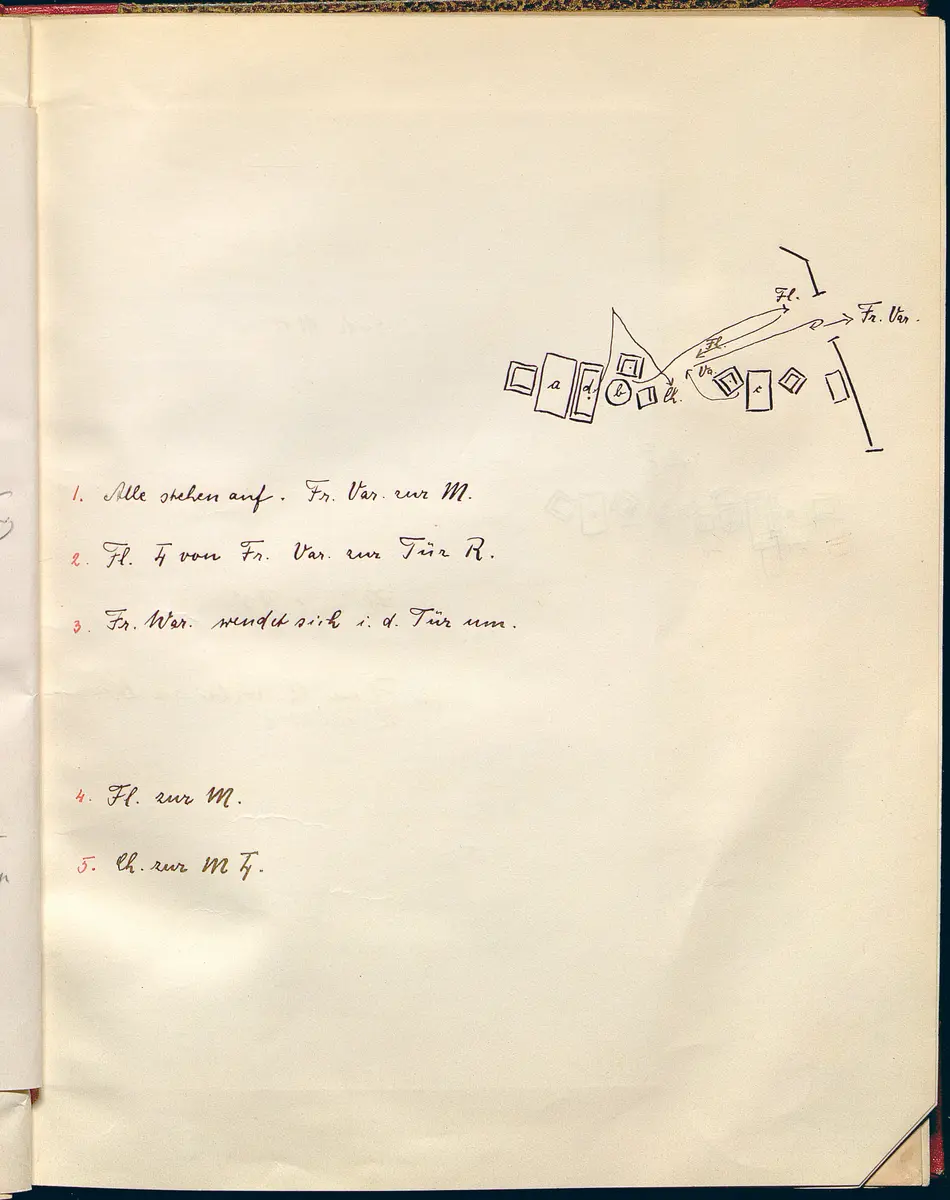 Fl.
Fr. Var.
Fl.
Va.
a
d.
b
Ch.
c
1. Alle stehen auf. Fr. Var. zur M.
2. Fl. von Fr. Var. zur Tür R.
3. Fr. War. wendet sich i. d. Tür um.
4. Fl. zur M.
5. Ch. zur M